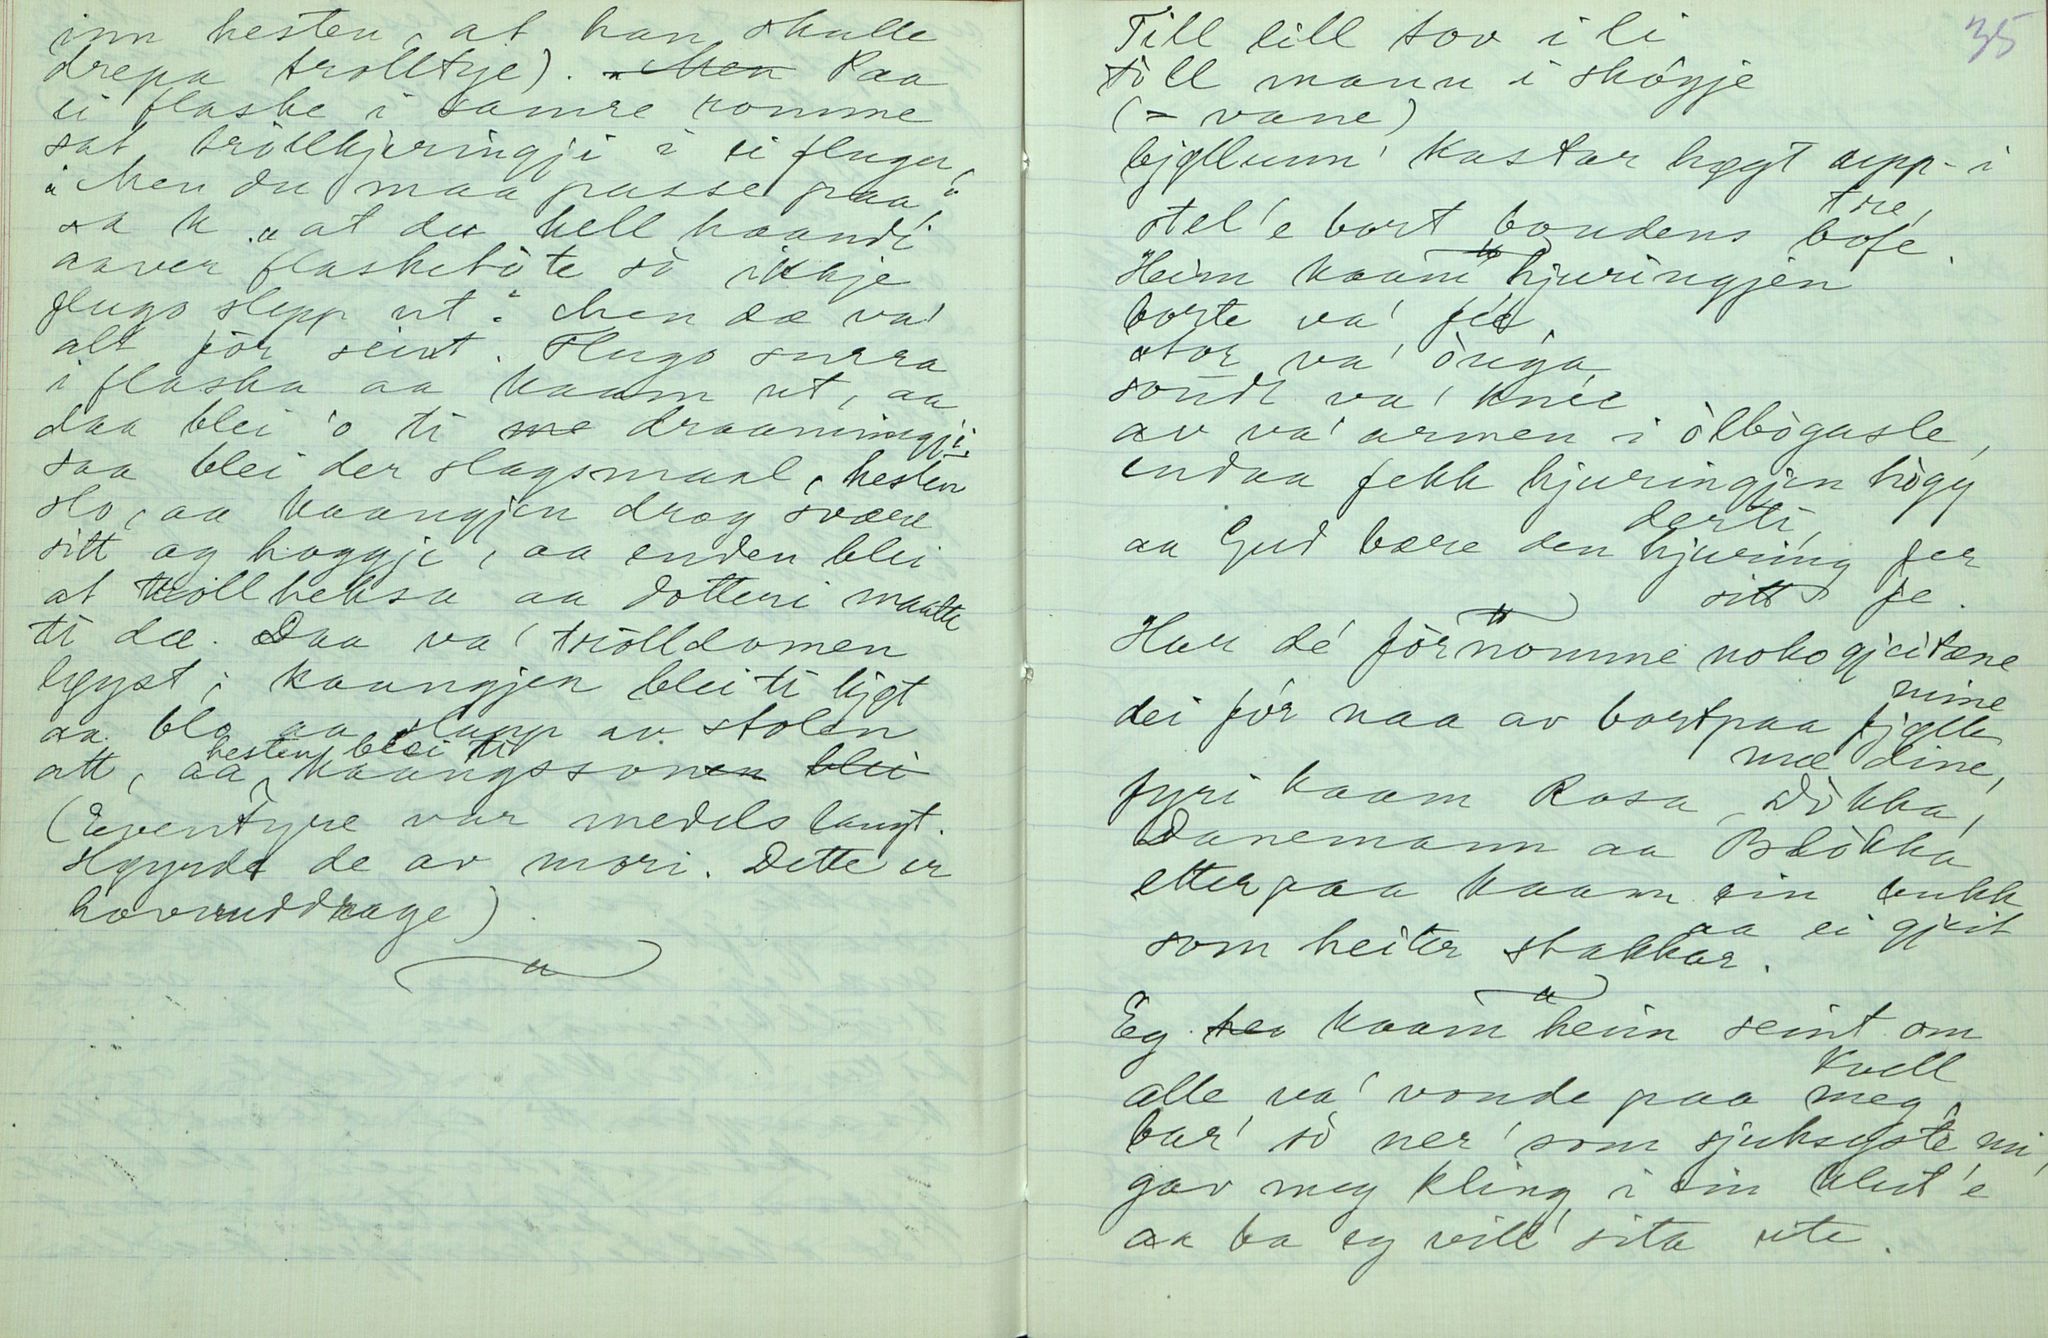 inn hesten, at han skulle
drepa trolltye). "Men Paa
ei flaske i samre romme
sat tròllkjeringji i ei fluge,
"Men du maa passe paa"
sa h. "at du hell haandí
aaver flasketùte sò ikkje
flugo slepp ut". Men dæ va'
alt för seint. Flugo surra
i flaska aa kaam ut, aa
daa blei 'o ti me draaningji.
saa blei der slagsmaal, hesten
slo, aa kaangjen drog svære
sitt ag hoggji, aa enden blei
at tröllheksa aa dotteri maatte
ti dæ. Daa va' trölldomen
løyst; kaangjen blei ti lygt
aa blo aa slapp av stolen
att, aa hesten blei ti kaangssonen blei
(Eventyre var medels langt.
Høyrde de av mori. Dette er
hovuddrage).
35
Till lill tov i li
töll mann i skògje
(= vane)
bjøllunn' kastar høgt upp i tre,
stel 'e bort bondens bofe.
Heim kaam hjuringjen
borte va' féé,
stor va' òuga,
soudt va' knéé
av va' armen i òlbògasle,
endaa fekk hjuringjen högg derti,
aa Gud bære den hjuring fer sitt fe.
Har dé förnomme noko gjeitæne mine
dei fór naa av bortpaa fjølle mæ dine,
fyri kaam Rosa, Dòkka,
Danemann aa Blòkka
etterpaa kaam ein bukk aa ei gjeit
som heiter stakkar.
Eg hea kaam heim seint om kvell
alle va' vonde paa meg,
bar' sò ner' som sjuksyste mi,
gav meg kling i ein klut 'e
aa ba eg vill' sita ute.